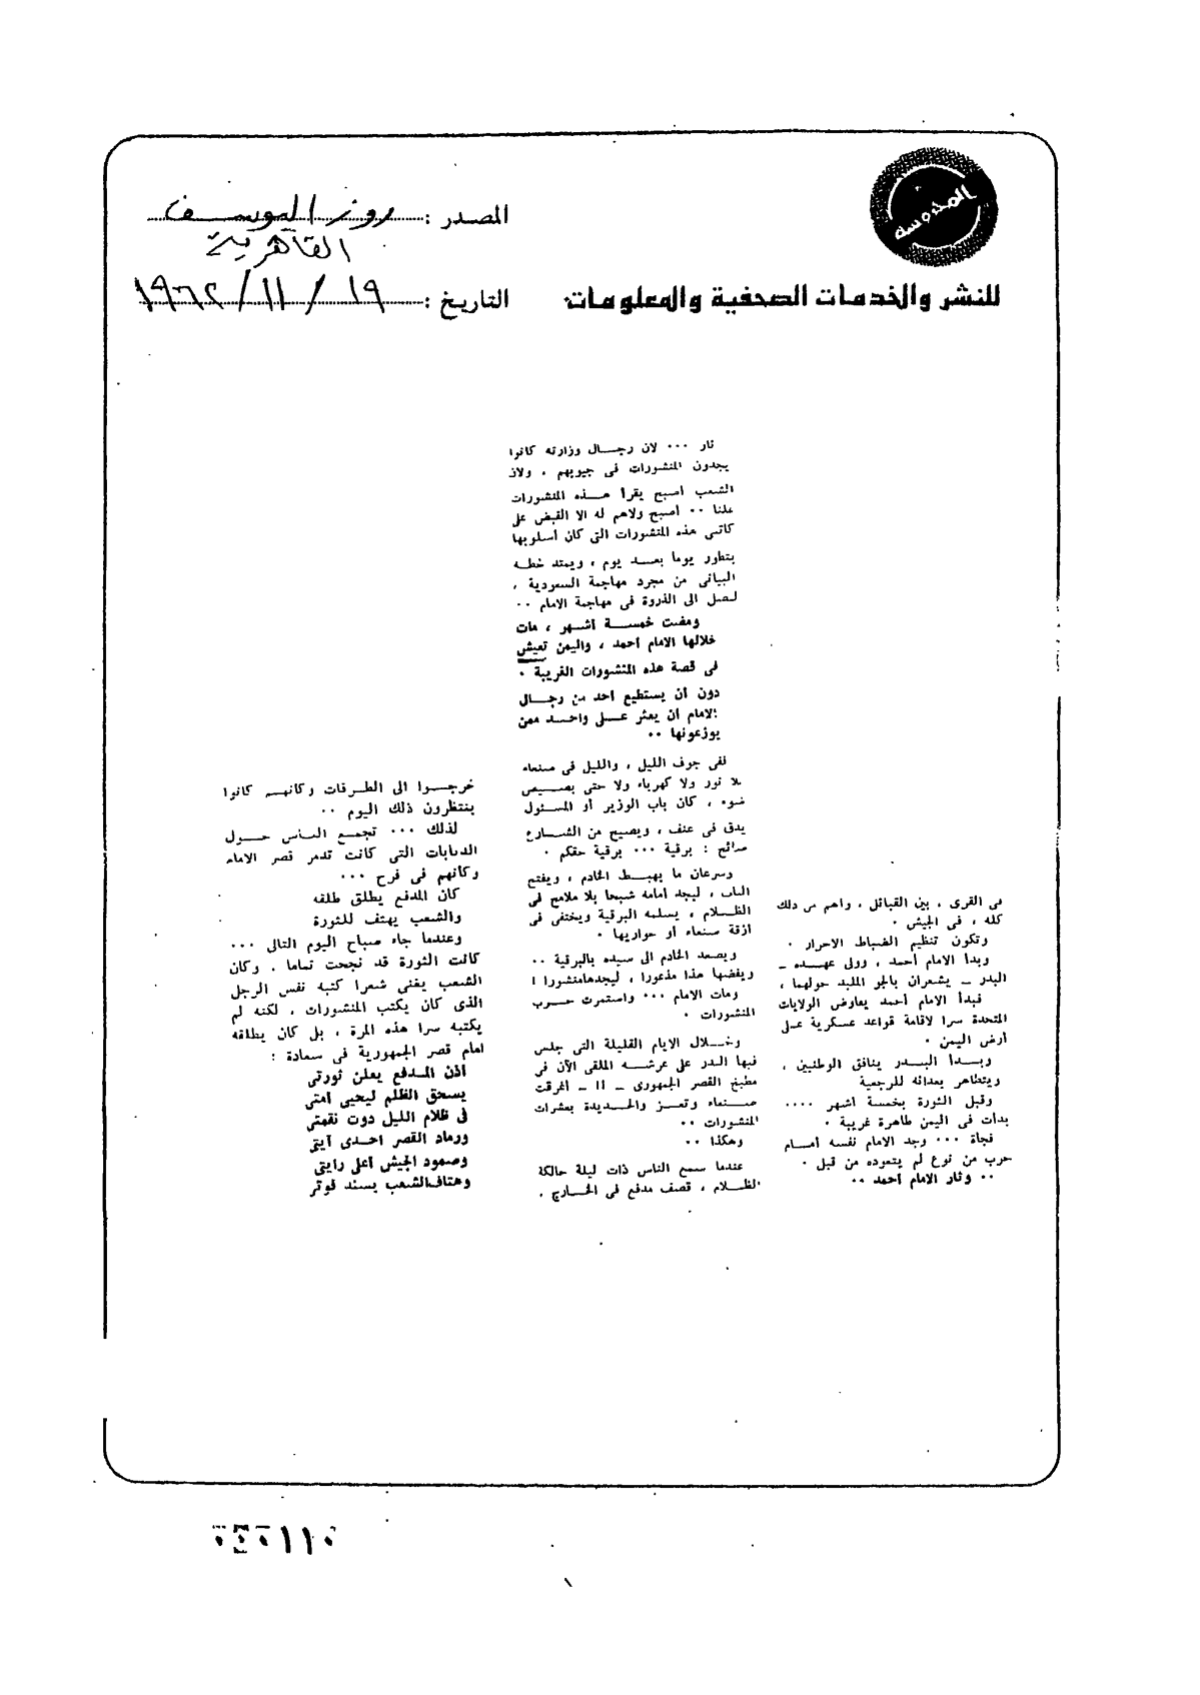 المحروسة
للنشر والخدمات الصحفية والمعلومات
المصدر : روز اليوسف
القاهرية
التاريخ : ١٩ / ١١ / ١٩٦٢
فى القرى ، بين القبائل ، واهم من ذلك
كله ، فى الجيش ٠
وتكون تنظيم الضباط الاحرار ٠
وبدأ الامام أحمد ، وولى عهـــده ــ
البدر ــ يشعران بالجو الملبد حولهما ،
فبدأ الامام أحمد يعارض الولايات
المتحدة سرا لاقامة قواعد عسكرية على
أرض اليمن ٠
وبـــدأ البـــدر ينافق الوطنيين ،
ويتظاهر بعدائه للرجعية
وقبل الثورة بخمسة اشهر ٠٠٠٠
بدأت فى اليمن ظاهرة غريبة ٠
فجأة ٠٠٠ وجد الامام نفسه أمـــام
حرب من نوع لم يتعوده من قبل ٠
٠٠ وثار الامام أحمد ٠٠
ثار ٠٠٠ لان رجـــال وزارته كانوا
يجدون المنشورات فى جيوبهم ، ولان
الشعب أصبح يقرأ هـــذه المنشورات
علنا ٠٠ أصبح ولاهم له الا القبض على
كاتبى هذه المنشورات التى كان أسلوبها
يتطور يوما بعـــد يوم ، ويمتد خطـه
البيانى من مجرد مهاجمة السعودية ،
ليصل الى الذروة فى مهاجمة الامام ٠٠
ومضت خمســـة اشـهر ، مات
خلالها الامام احمد ، واليمن تعيش
فى قصة هذه المنشورات الغريبة ٠
دون أن يستطيع احد من رجـــال
الامام ان يعثر عـــلى واحـــد ممن
يوزعونها ٠٠
ففى جوف الليل ، والليل فى صنعاء
بلا نور ولا كهرباء ولا حتى بصـــيص
ضوء ، كان باب الوزير أو المسئول
يدق فى عنف ، ويصيح من الشـــارع
صائح : برقية ٠٠٠ برقية حقكم ٠
وسرعان ما يهبـــط الخادم ، ويفتح
الباب ، ليجد أمامه شبحا بلا ملامح فى
الظـــلام ، يسلمه البرقية ويختفى فى
ازقة صنعاء أو حواريها ٠
ويصعد الخادم الى سيده بالبرقية ٠٠
ويفضها هذا مذعورا ، ليجدهامنشورا !
ومات الامام ٠٠٠ واستمرت حـــرب
المنشورات ٠
وخـــلال الايام القليلة التى جلس
فيها البدر على عرشـــه الملقى الآن فى
مطبخ القصر الجمهورى ــ !! ــ أغرقت
صـــنعاء وتعـــز والحـــديدة بعشرات
المنشورات ٠٠
وهكذا ٠٠
عندما سمع الناس ذات ليلة حالكة
الظـــلام ، قصف مدفع فى الخـــارج ،
خرجـــوا الى الطـرقات وكانهـم كانوا
ينتظرون ذلك اليوم ٠٠
لذلك ٠٠٠ تجمـع الناس حـــول
الدبابات التى كانت تدمر قصر الامام
وكانهم فى فرح ٠٠٠
كان المدفع يطلق طلقه
والشعب يهتف للثورة
وعندما جاء صباح اليوم التالى ٠٠٠
كانت الثورة قد نجحت تماما ، وكان
الشعب يغنى شعرا كتبه نفس الرجل
الذى كان يكتب المنشورات ، لكنه لم
يكتبه سرا هذه المرة ، بل كان يطلقه
امام قصر الجمهورية فى سعادة :
أذن المـدفع يعلن ثورتى
يسحق الظلم ليحيى امتى
فى ظلام الليل دوت نقمتى
ورماد القصر احـدى آيتى
وصمود الجيش أعلى رايتى
وهتاف الشعب يسند قوتى
١